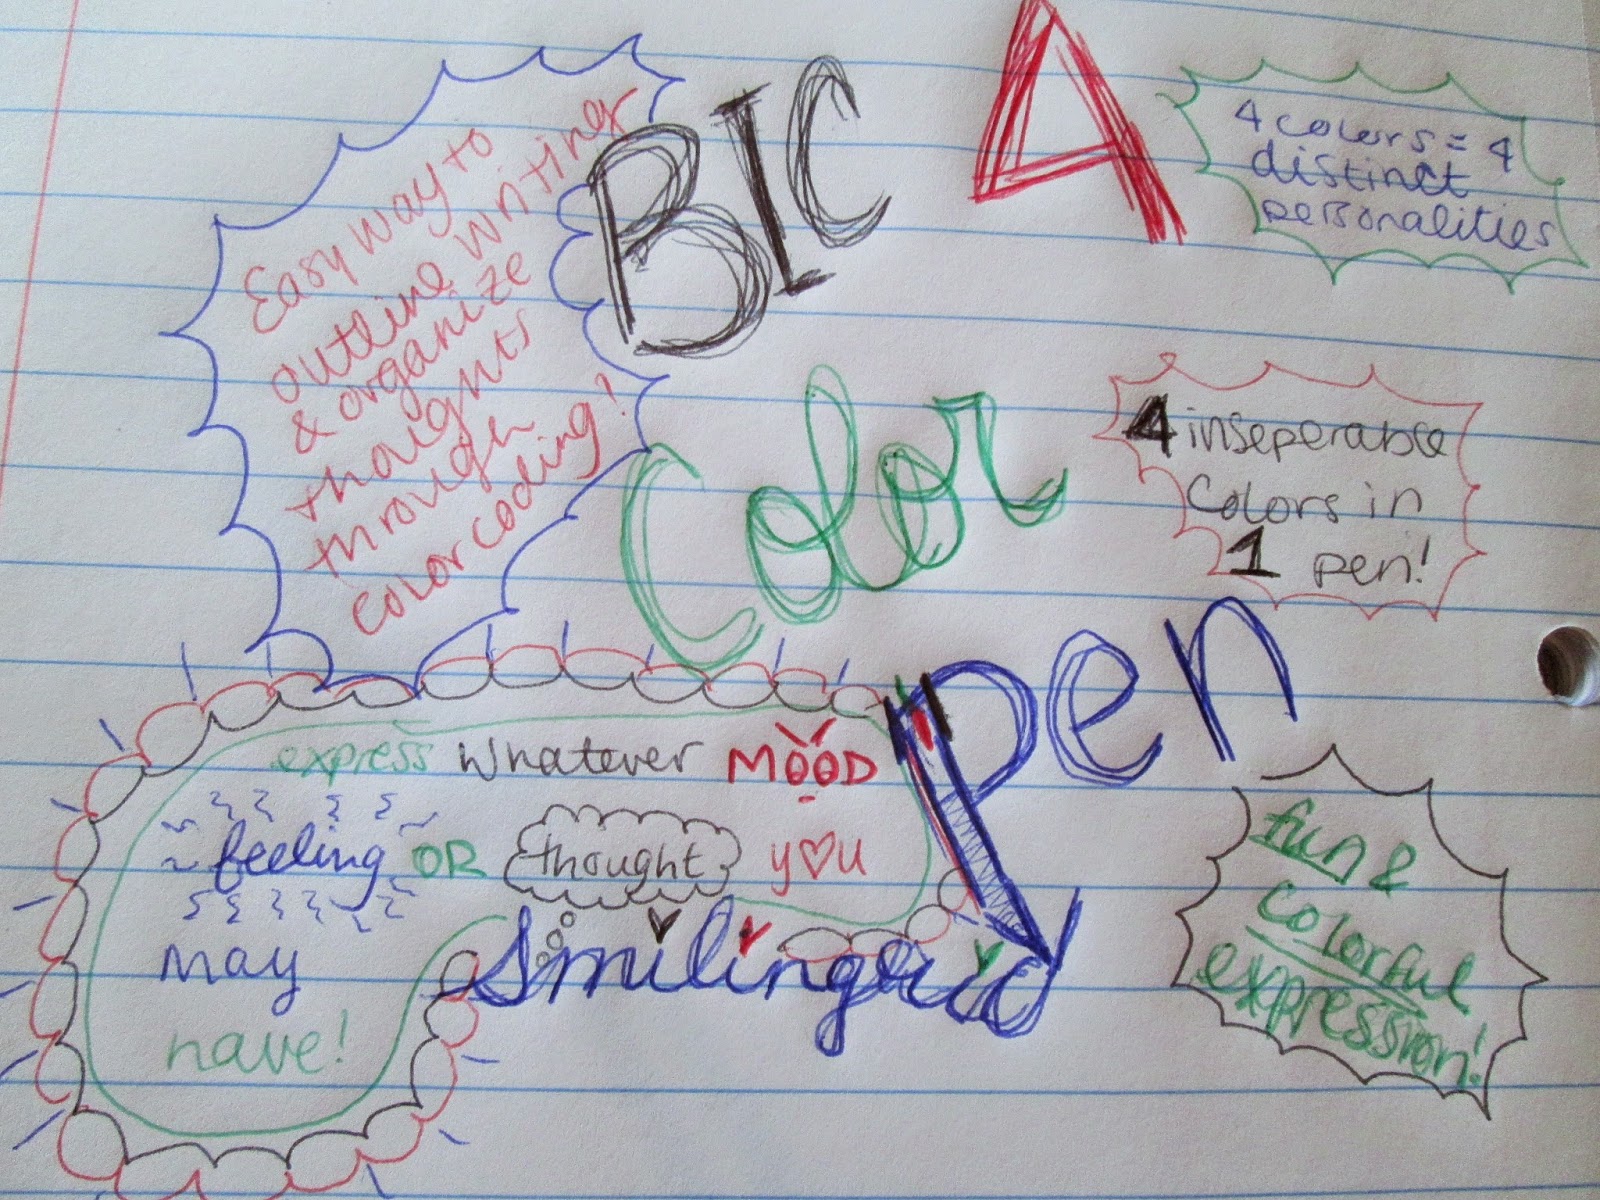 BIC 4
Color
Pen
Easy way to
outline writing
& organize
thoughts
through
color coding!
4 colors = 4
distinct
personalities
4 inseperable
colors in
1 pen!
express whatever MOOD
feeling OR thought you
may
have!
fun &
colorful
expression!